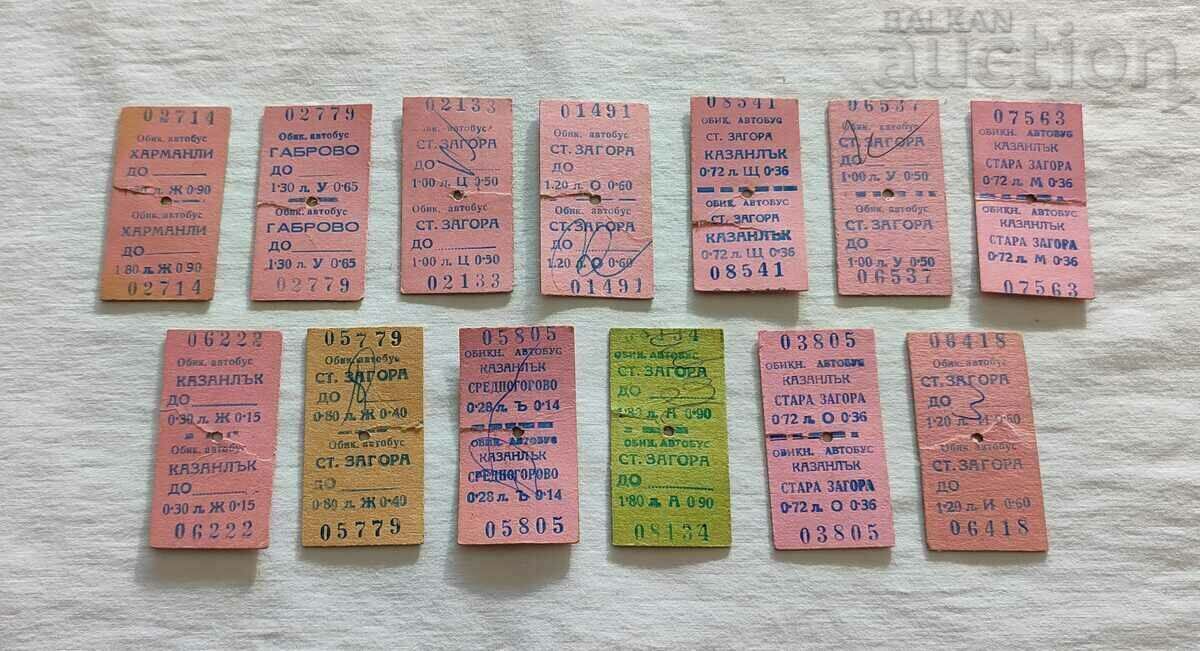 BALKAN
auction
02714
Обик. автобус
ХАРМАНЛИ
ДО
0·90
Обик. автобус
ХАРМАНЛИ
ДО
1·80 л. Ж 0·90
02714
02779
Обик. автобус
ГАБРОВО
ДО
1·30 л. У 0·65
Обик. автобус
ГАБРОВО
ДО
1·30 л. У 0·65
02779
02133
автобус
СТ. ЗАГОРА
ДО
1·00 л. Ц 0·50
Обик. автобус
СТ. ЗАГОРА
ДО
1·00 л. Ц 0·50
02133
01491
Обик. автобус
СТ. ЗАГОРА
ДО
1.20 л. О 0·60
Обик. автобус
СТ. ЗАГОРА
ДО
1.20 л. О 0·60
01491
08541
ОБИК. АВТОБУС
СТ. ЗАГОРА
КАЗАНЛЪК
0·72 л. Щ 0·36
ОБИК. АВТОБУС
СТ. ЗАГОРА
КАЗАНЛЪК
0·72 л. Щ 0·36
08541
06537
Обик. автобус
СТ. ЗАГОРА
ДО
1·00 л. У 0·50
Обик. автобус
СТ. ЗАГОРА
ДО
1·00 л. У 0·50
06537
07563
ОБИКН. АВТОБУС
КАЗАНЛЪК
СТАРА ЗАГОРА
0·72 л. М 0·36
ОБИКН. АВТОБУС
КАЗАНЛЪК
СТАРА ЗАГОРА
0·72 л. М 0·36
07563
06222
Обик. автобус
КАЗАНЛЪК
ДО
0·30 л. Ж 0·15
Обик. автобус
КАЗАНЛЪК
ДО
0·30 л. Ж 0·15
06222
05779
Обик. автобус
СТ. ЗАГОРА
ДО
0·80 л. Ж 0·40
Обик. автобус
СТ. ЗАГОРА
ДО
0·80 л. Ж 0·40
05779
05805
ОБИКН. АВТОБУС
КАЗАНЛЪК
СРЕДНОГОРОВО
0·28 л. Ъ 0·14
ОБИКН. АВТОБУС
КАЗАНЛЪК
СРЕДНОГОРОВО
0·28 л. Ъ 0·14
05805
08134
Обик. автобус
СТ. ЗАГОРА
ДО
1·80 л. А 0·90
Обик. автобус
СТ. ЗАГОРА
ДО
1·80 л. А 0·90
08134
03805
ОБИКН. АВТОБУС
КАЗАНЛЪК
СТАРА ЗАГОРА
0·72 л. О 0·36
ОБИКН. АВТОБУС
КАЗАНЛЪК
СТАРА ЗАГОРА
0·72 л. О 0·36
03805
06418
Обик. автобус
СТ. ЗАГОРА
ДО
1·20 л. И 0·60
Обик. автобус
СТ. ЗАГОРА
ДО
1·20 л. И 0·60
06418